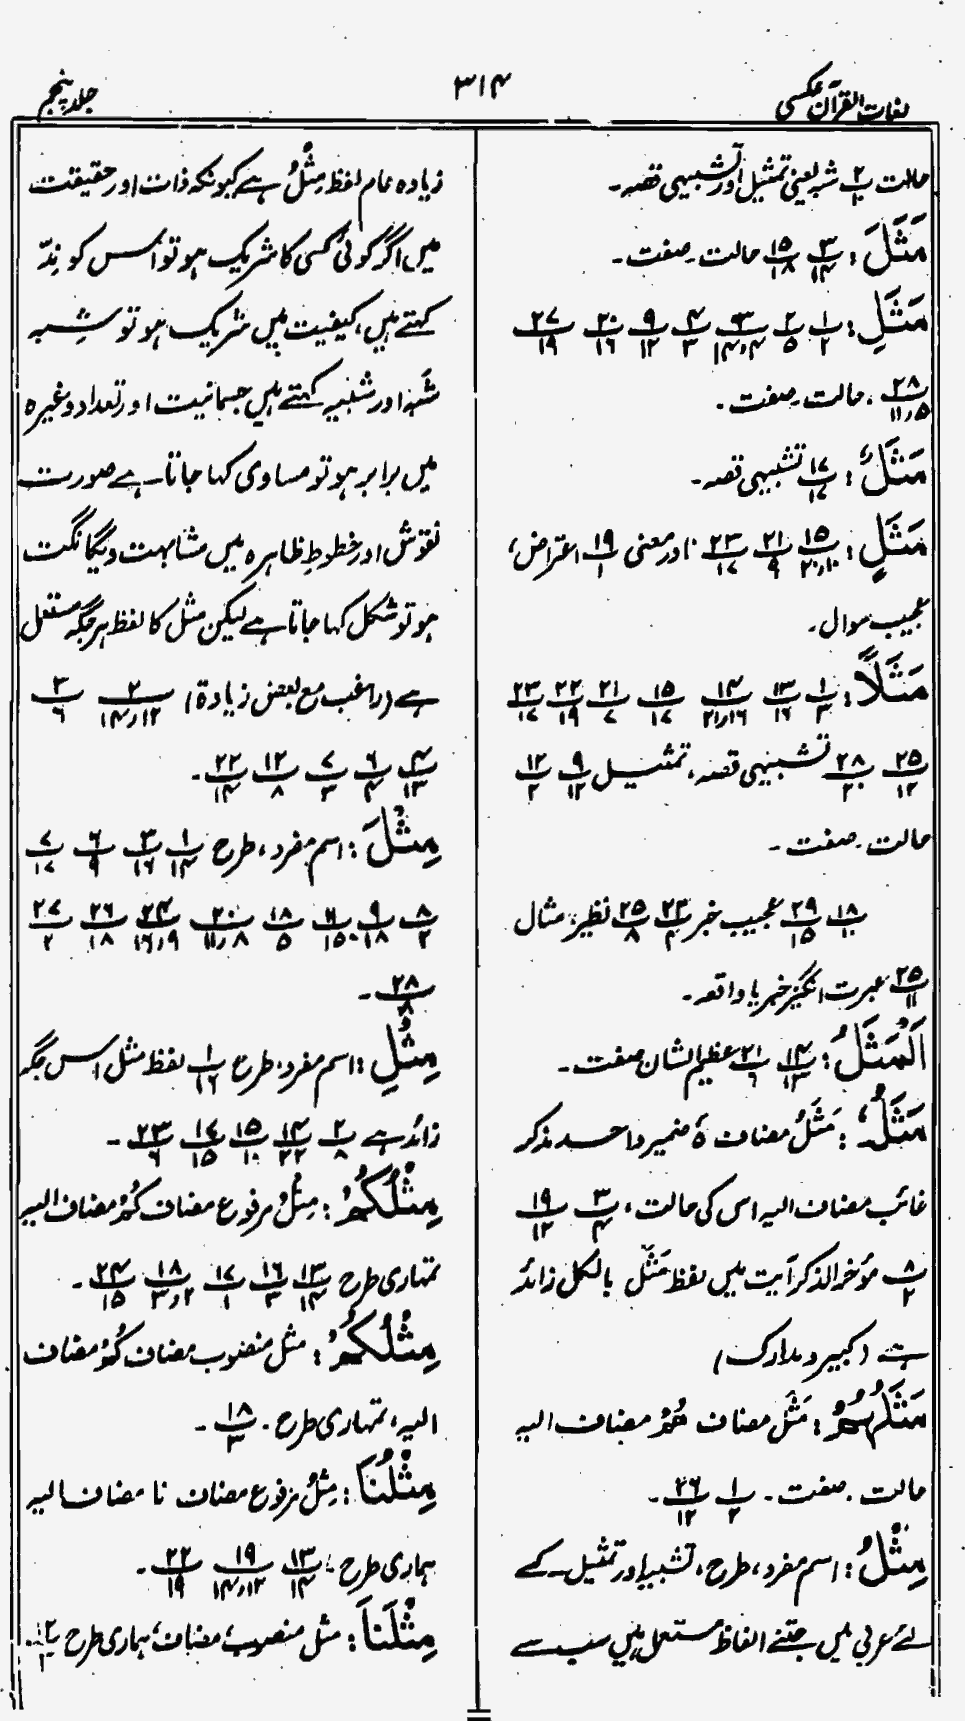 لغات القرآن عکسی
۳۱۴
جلد پنجم
حالت ۲/۱ شبہ یعنی تمثیل اور تشبیہی قصہ۔
مَثَلَ : ۳/۱۴ ۱۵/۱۸ حالت۔ صفت۔
مَثَلِ : ۱/۲ ۲/۵ ۳/۱۴،۴ ۴/۳ ۹/۱۲ ۲۰/۱۶ ۲۷/۱۹
۲۸/۱۱،۵ ، حالت۔ صفت۔
مَثَلٌ : ۱۷/۱۷ تشبیہی قصہ۔
مَثَلٍ : ۱۵/۲۰،۱۰ ۲۱/۹ ۲۳/۱۷ نادر معنی ۱۹/۱ اعتراض،
عجیب سوال۔
مَثَلًا : ۱/۳ ۱۳/۱۶ ۱۴/۲۱،۱۶ ۱۵/۱۷ ۲۱/۷ ۲۲/۱۹ ۲۳/۱۷
۲۵/۱۲ ۲۸/۲۰ تشبیہی قصہ، تمثیل ۹/۱۲ ۱۲/۲
حالت۔ صفت۔
۱۸/۱۰ ۲۹/۱۵ عجیب خبر ۲۳/۴ ۲۵/۸ نظیر، مثال
۲۵/۱۱ عبرت انگیز خبر یا واقعہ۔
اَلْمَثَلُ : ۱۴/۱۳ ۲۱/۶ عظیم الشان صفت۔
مَثَلُہٗ : مَثَلُ مضاف ہٗ ضمیر واحد مذکر
غائب مضاف الیہ اس کی حالت، ۳/۴ ۱۹/۱۲
۸/۲ مؤخر الذکر آیت میں لفظ مَثَلْ بالکل زائد
ہے (کبیر و مدارک)
مَثَلُہُمْ : مَثَلُ مضاف ھُمْ مضاف الیہ
حالت۔ صفت۔ ۱/۲ ۲۶/۱۲۔
مِثْلُ : اسم مفرد، طرح، تشبیہ اور تمثیل کے
لئے عربی میں جتنے الفاظ مستعمل ہیں سب سے
زیادہ عام لفظ مِثْلُ ہے کیونکہ ذات اور حقیقت
میں اگر کوئی کسی کا شریک ہو تو اس کو نِدّ
کہتے ہیں، کیفیت میں شریک ہو تو شِبہ
شَبَہ اور شبیہ کہتے ہیں جسمانیت اور تعداد وغیرہ
میں برابر ہو تو مساوی کہا جاتا ہے صورت
نقوش اور خطوطِ ظاہرہ میں مشابہت ویگانگت
ہو تو شکل کہا جاتا ہے لیکن مثل کا لفظ ہر جگہ مستعمل
ہے (راغب مع بعض زیادۃ) ۲/۱۴،۱۲ ۳/۶
۴/۱۳ ۶/۴ ۷/۳ ۱۲/۸ ۲۲/۱۴۔
مِثْلَ : اسم مفرد، طرح ۱/۱۴ ۳/۱۶ ۶/۹ ۷/۱۷
۸/۲ ۹/۱۸ ۱۱/۱۵ ۱۸/۵ ۲۰/۱۱،۸ ۲۴/۱۶،۹ ۲۶/۱۸ ۲۷/۲
۲۸/۸۔
مِثْلِ : اسم مفرد، طرح ۱/۱۶ لفظ مثل اس جگہ
زائد ہے ۲/۸ ۱۴/۲۲ ۱۵/۱۰ ۱۷/۱۵ ۲۳/۶۔
مِثْلُکُمْ : مِثْلُ مرفوع مضاف کُمْ مضاف الیہ
تمہاری طرح ۱۳/۱۴ ۱۶/۳ ۱۷/۱ ۱۸/۳،۲ ۲۴/۱۵۔
مِثْلَکُمْ : مثل منصوب مضاف کُمْ مضاف
الیہ، تمہاری طرح۔ ۱۸/۳۔
مِثْلُنَا : مِثْلُ مرفوع مضاف نا مضاف الیہ
ہماری طرح : ۱۳/۱۴ ۱۹/۱۴،۱۲ ۲۲/۱۹۔
مِثْلَنَا : مثل منصوب، مضاف، ہماری طرح